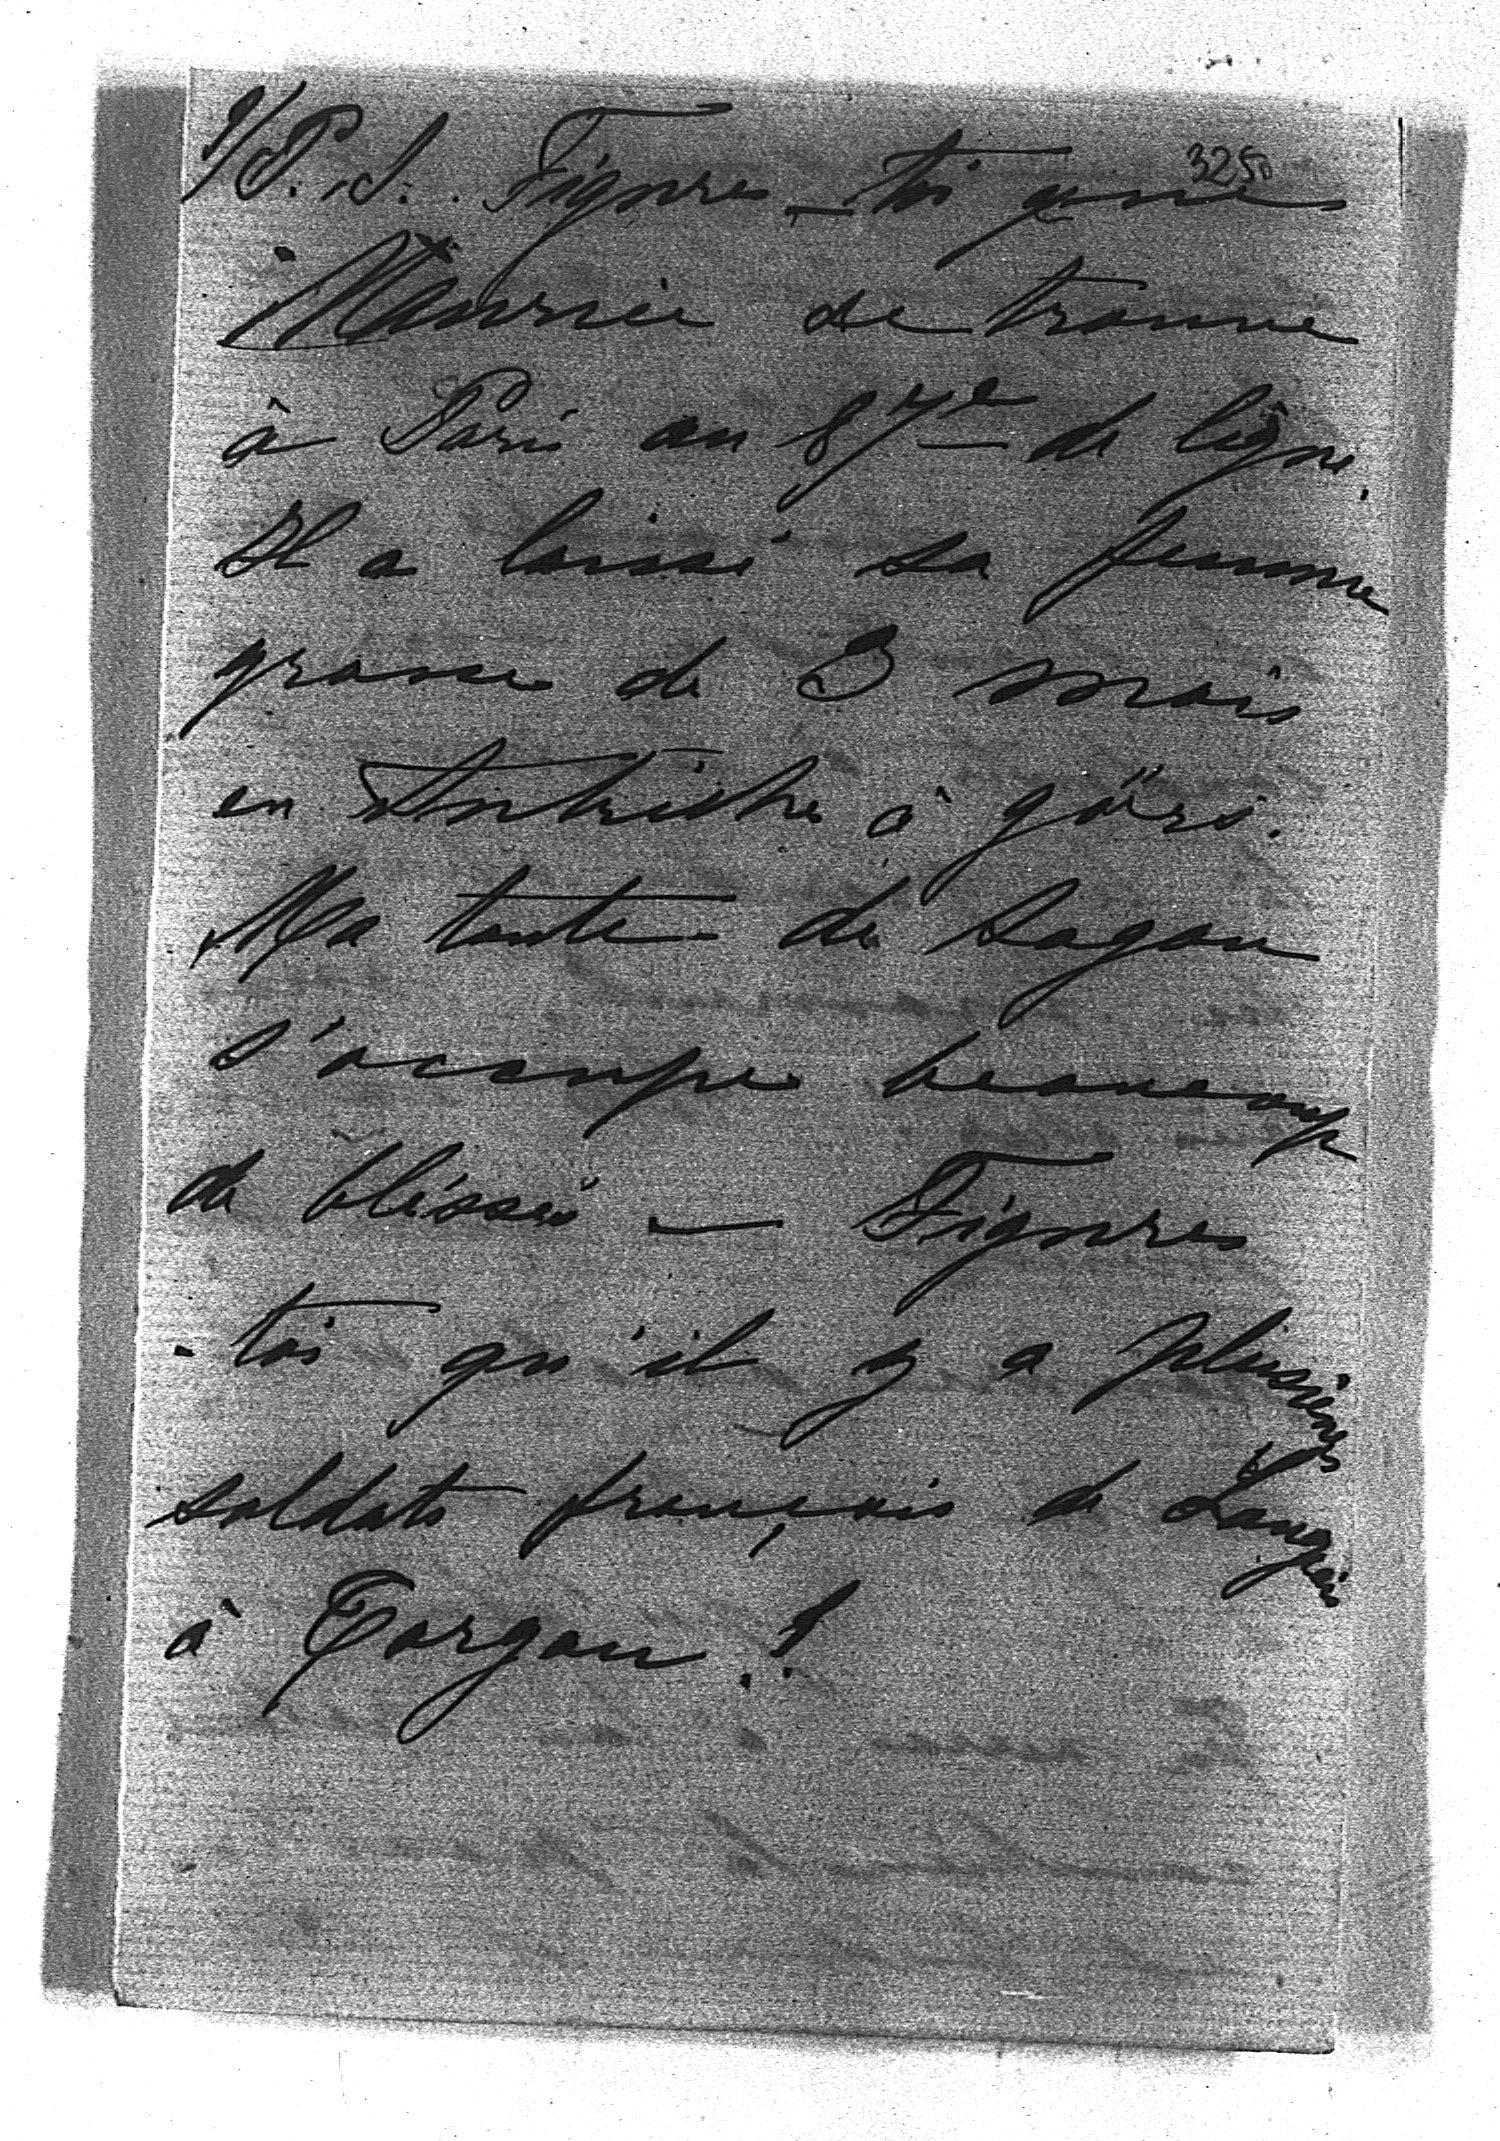 9/ P. S. Figures-toi que 3250
Maurice se trouve
à Paris au 87me de ligne.
Il a laissé sa femme
grosse de 3 mois
en Autriche à görs.
Ma tante de Sagan
s'occupe beaucoup
de bléssés — Figures
-toi qu'il y a plusieurs
soldats français de Langeais
à Torgau !